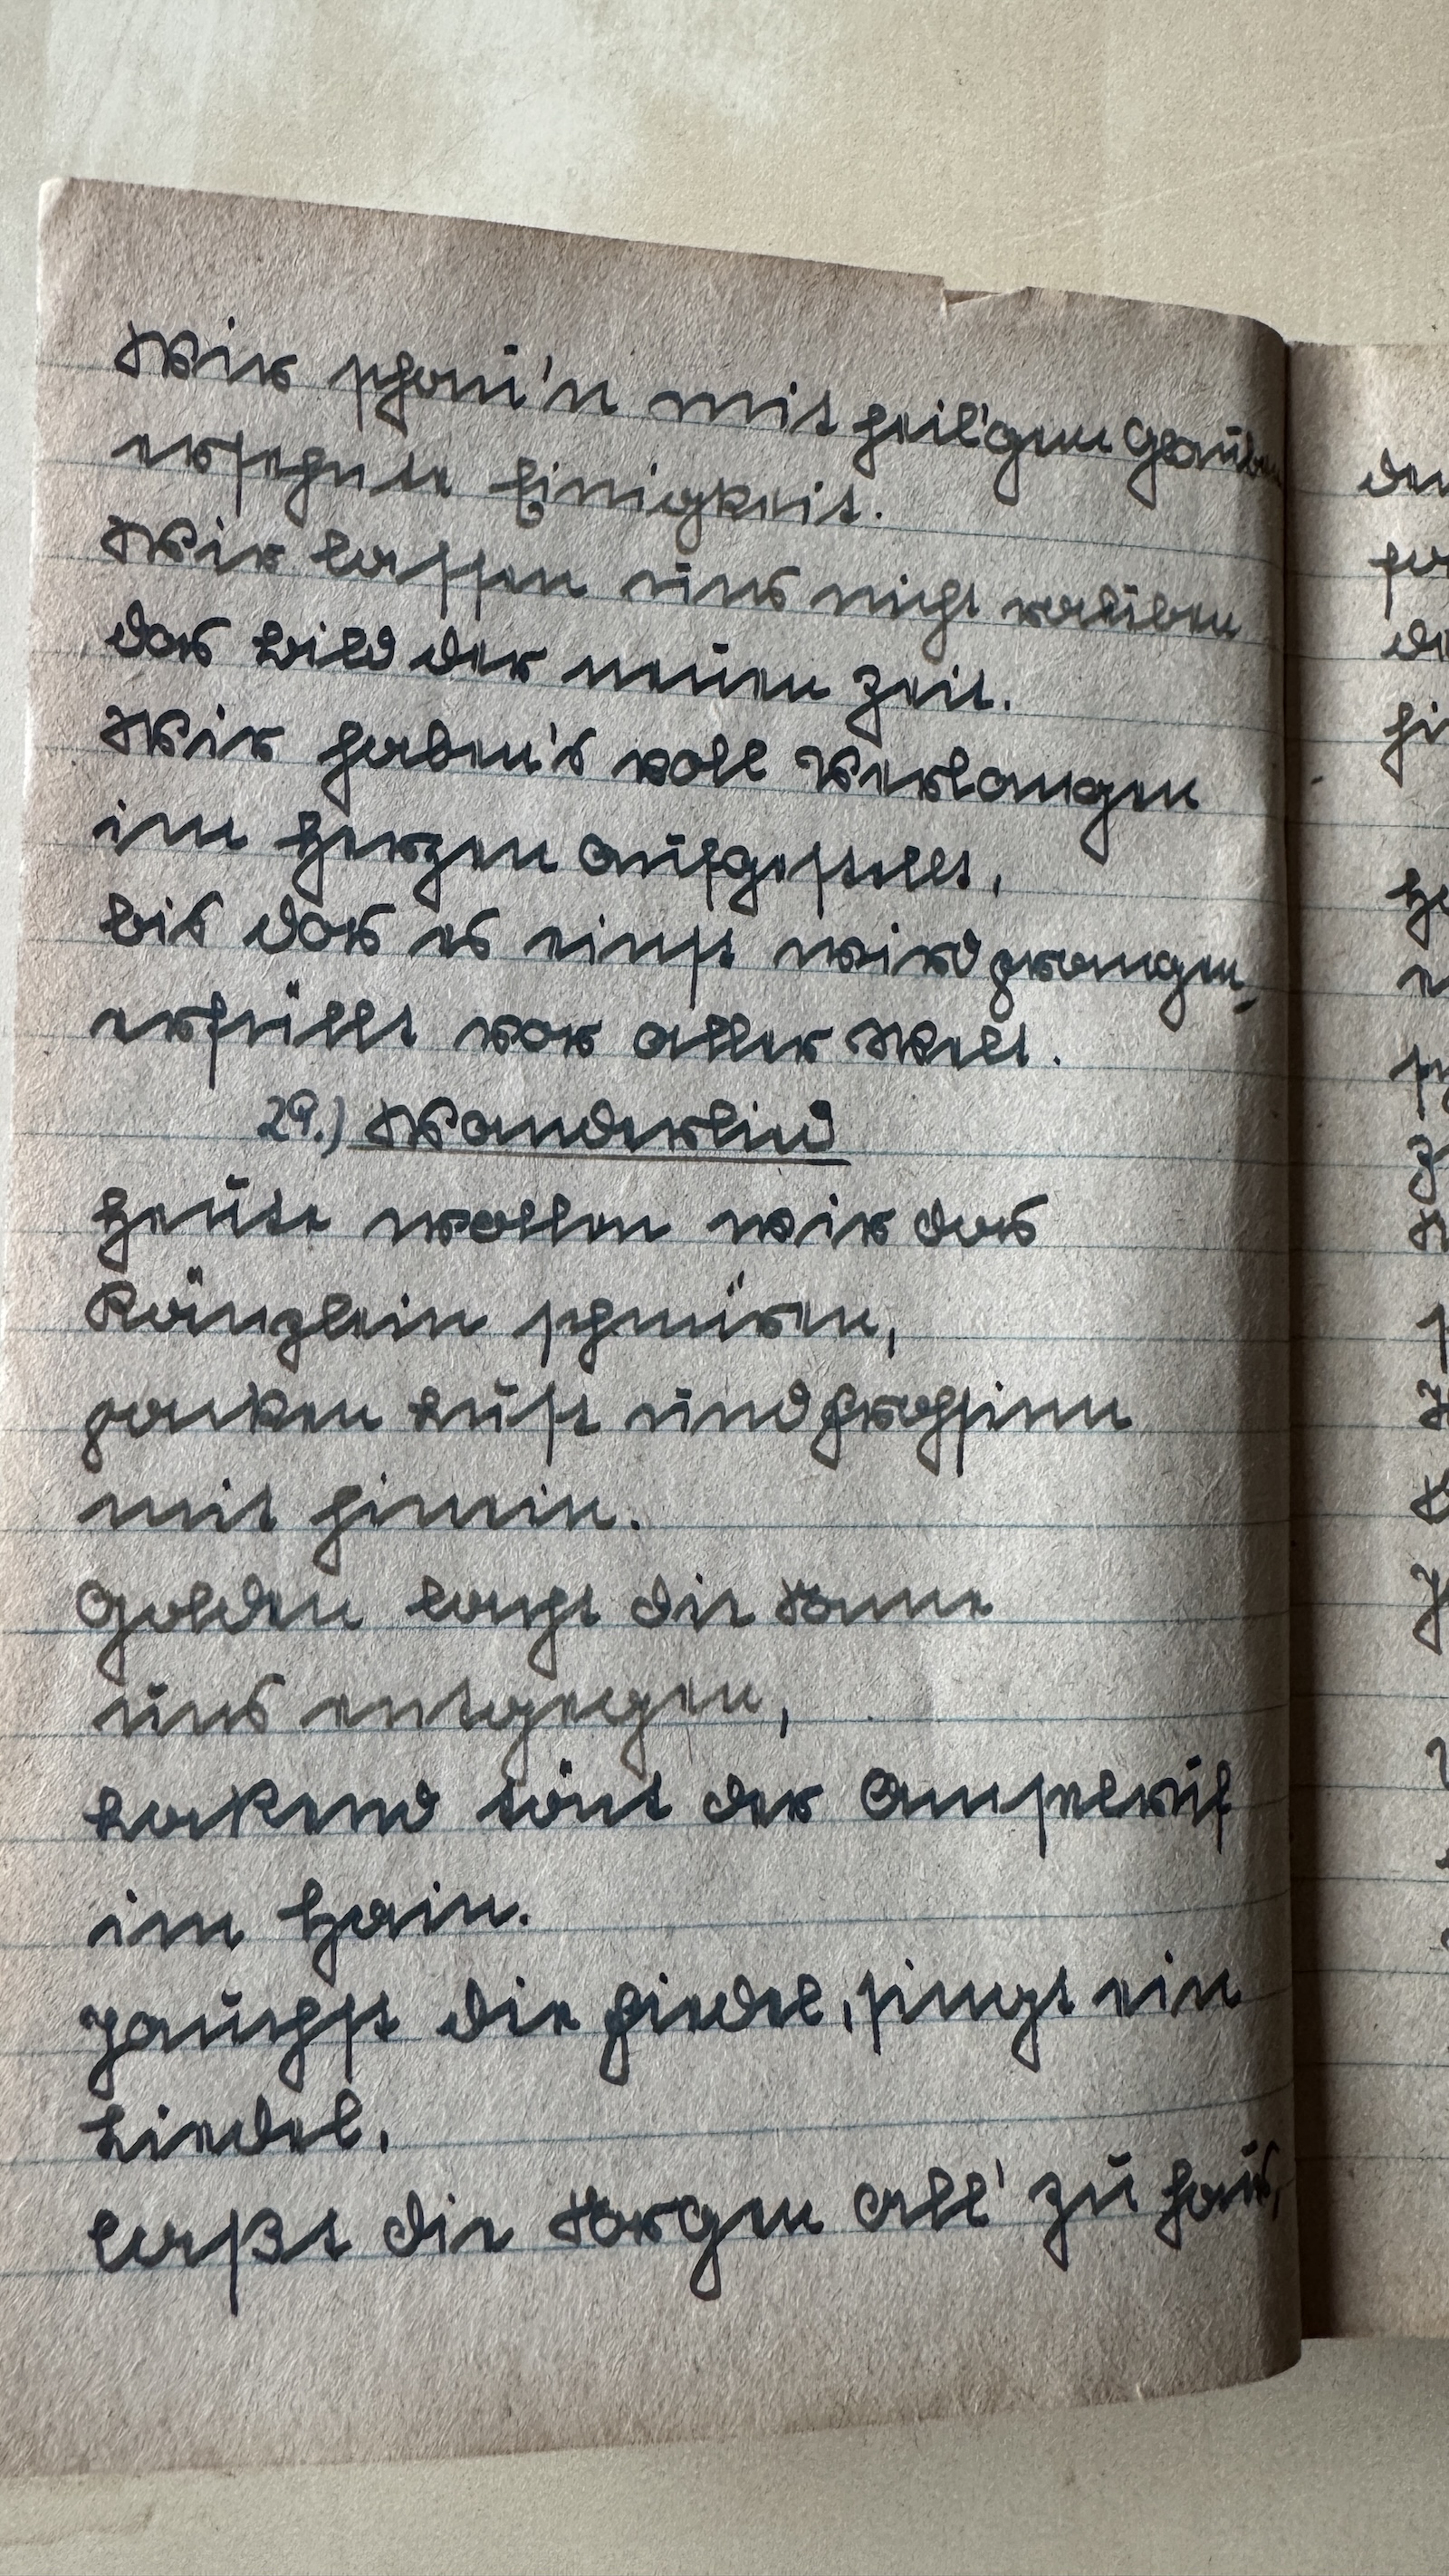 Wir schau'n mit heil'gem Glauben
ersehnte Einigkeit.
Wir lassen uns nicht rauben
das Bild der neuen Zeit.
Wir haben's voll Verlangen
im Herzen aufgestellt,
bis das es einst wird prangen
erfüllt vor aller Welt.
29.) Wanderlied
Heute wollen wir das
Ränzlein schnüren,
packen Lust und Frohsinn
mit hinein.
Golden lacht die Sonne
uns entgegen,
Lockend tönt der Amselruf
im Hain.
Jauchst die Fiedel, singt ein
Liedel,
laßt die Sorgen all' zu Haus,